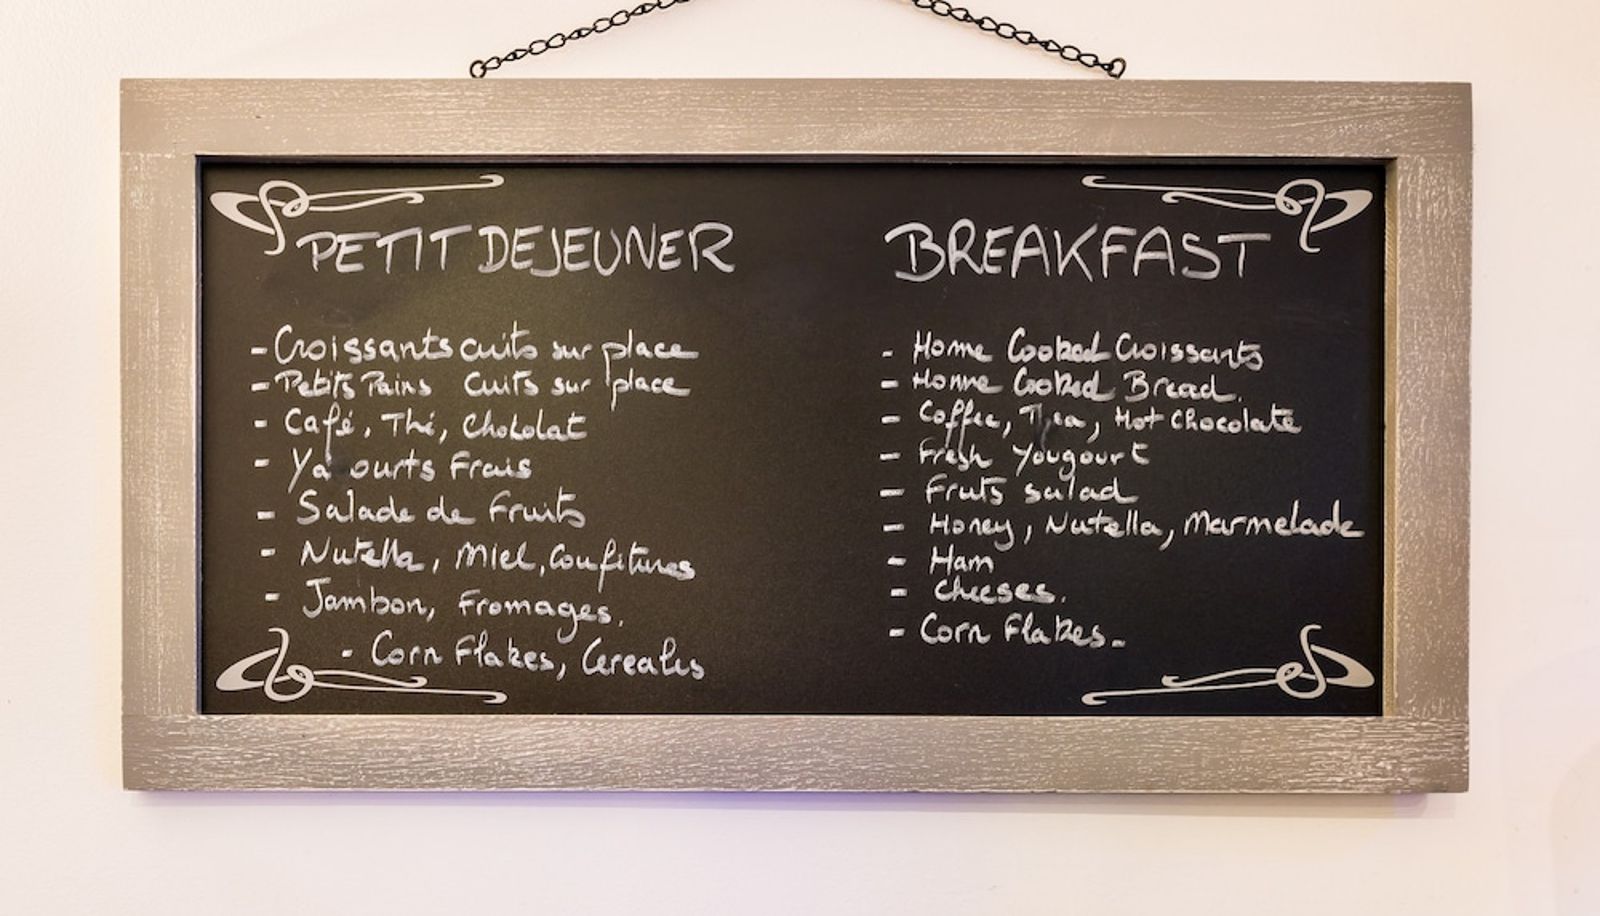 PETIT DEJEUNER
- Croissants cuits sur place
- Petits Pains cuits sur place
- Café, Thé, Chocolat
- Ya ourts Frais
- Salade de Fruits
- Nutella, Miel, Confitures
- Jambon, Fromages.
- Corn Flakes, Cereales
BREAKFAST
- Home Cooked Croissants
- Home Cooked Bread.
- Coffee, Tea, Hot Chocolate
- Fresh Yougourt
- Fruts salad
- Honey, Nutella, Marmelade
- Ham
- Cheeses.
- Corn Flakes.